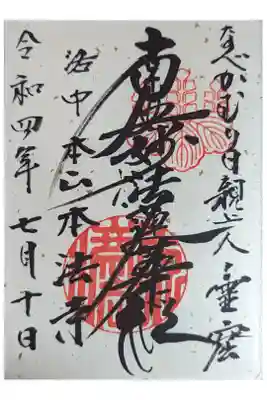 なべかむり日親上人霊窟
南無妙法蓮華経
洛中本山本法寺
令和四年七月十日